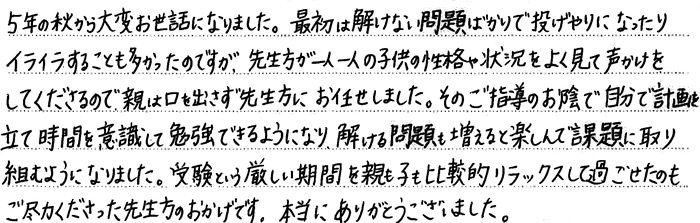 5年の秋から大変お世話になりました。最初は解けない問題ばかりで投げやりになったり
イライラすることも多かったのですが、先生方が一人一人の子供の性格や状況をよく見て声かけを
してくださるので親は口を出さず先生方にお任せしました。そのご指導のお陰で自分で計画を
立て時間を意識して勉強できるようになり、解ける問題も増えると楽しんで課題に取り
組むようになりました。受験という厳しい期間を親も子も比較的リラックスして過ごせたのも
ご尽力くださった先生方のおかげです。本当にありがとうございました。